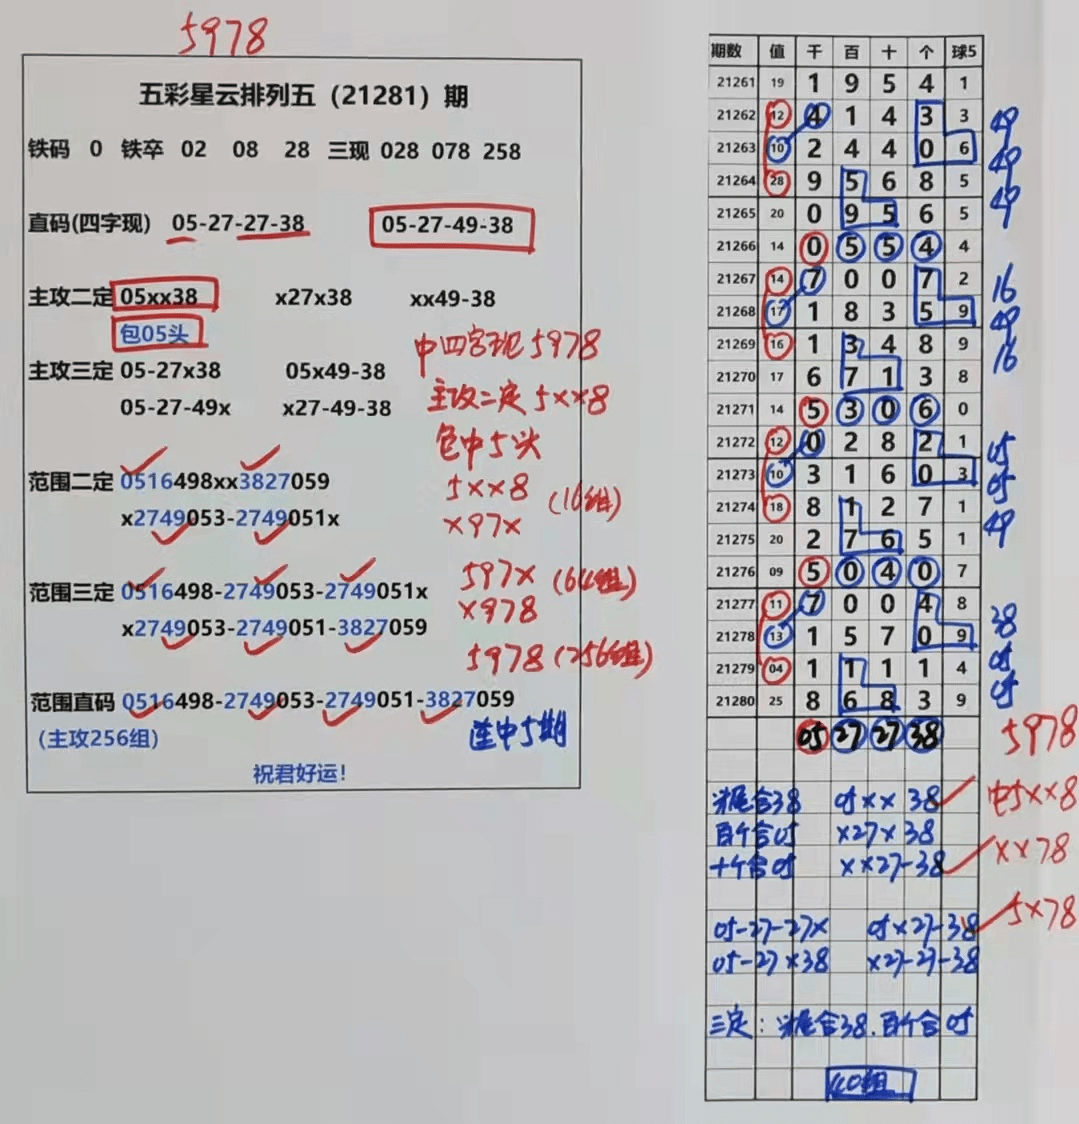 5978
五彩星云排列五（21281）期
铁码 0 铁卒 02 08 28 三现 028 078 258
直码(四字现) 05-27-27-38 05-27-49-38
主攻二定 05xx38 x27x38 xx49-38
包05头
中四字现5978
主攻三定 05-27x38 05x49-38
主攻二定5××8
05-27-49x x27-49-38
包中5头
范围二定 0516498xx3827059
5××8 (16组)
x2749053-2749051x
×97×
范围三定 0516498-2749053-2749051x
597× (64组)
x2749053-2749051-3827059
×978
5978 (256组)
范围直码 0516498-2749053-2749051-3827059
（主攻256组）
连中5期
祝君好运！
期数 值 千 百 十 个 球5
21261 19 1 9 5 4 1
21262 12 4 1 4 3 3 49
21263 10 2 4 4 0 6 49
21264 28 9 5 6 8 5 49
21265 20 0 9 5 6 5
21266 14 0 5 5 4 4
21267 14 7 0 0 7 2 16
21268 17 1 8 3 5 9 49
21269 16 1 3 4 8 9 16
21270 17 6 7 1 3 8
21271 14 5 3 0 6 0
21272 12 0 2 8 2 1 05
21273 10 3 1 6 0 3 05
21274 18 8 1 2 7 1 49
21275 20 2 7 6 5 1
21276 09 5 0 4 0 7
21277 11 7 0 0 4 8 38
21278 13 1 5 7 0 9 05
21279 04 1 1 1 1 4 05
21280 25 8 6 8 3 9
05 27 27 38 5978
尾合38 05×× 38 中5××8
百个合05 ×27×38
十个合05 ××27-38 ××78
05-27-27× 05×27-38 5×78
05-27×38 ×27-27-38
三定：尾合38.百个合05
40组